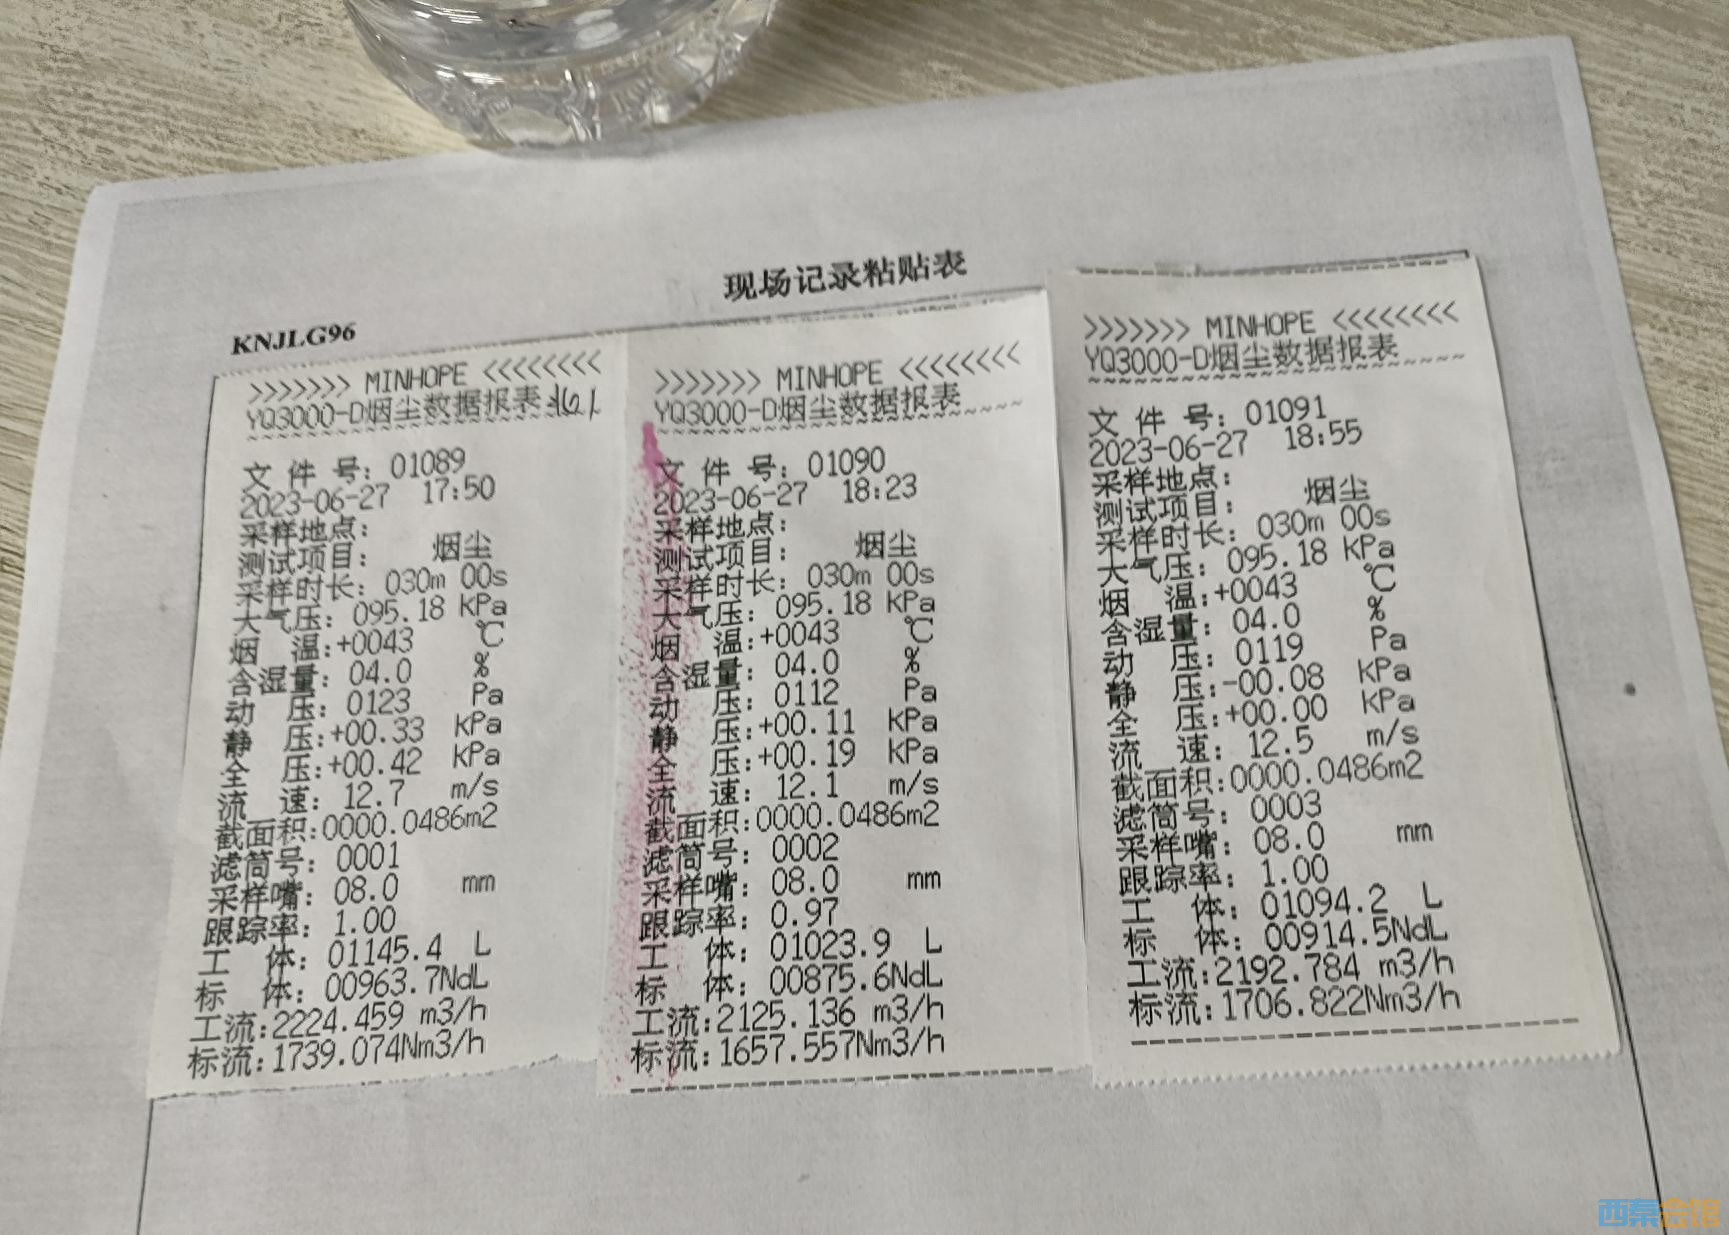 现场记录粘贴表
KNJLG96
>>>>>>> MINHOPE <<<<<<<<
YQ3000-D烟尘数据报表
文 件 号: 01089
2023-06-27 17:50
采样地点:
测试项目: 烟尘
采样时长: 030m 00s
大气压: 095.18 kPa
烟 温:+0043 ℃
含湿量: 04.0 %
动 压: 0123 Pa
静 压:+00.33 kPa
全 压:+00.42 kPa
流 速: 12.7 m/s
截面积:0000.0486m2
滤筒号: 0001
采样嘴: 08.0 mm
跟踪率: 1.00
工 体: 01145.4 L
标 体: 00963.7NdL
工流:2224.459 m3/h
标流:1739.074Nm3/h
>>>>>>> MINHOPE <<<<<<<<
YQ3000-D烟尘数据报表
文 件 号: 01090
2023-06-27 18:23
采样地点:
测试项目: 烟尘
采样时长: 030m 00s
大气压: 095.18 kPa
烟 温:+0043 ℃
含湿量: 04.0 %
动 压: 0112 Pa
静 压:+00.11 kPa
全 压:+00.19 kPa
流 速: 12.1 m/s
截面积:0000.0486m2
滤筒号: 0002
采样嘴: 08.0 mm
跟踪率: 0.97
工 体: 01023.9 L
标 体: 00875.6NdL
工流:2125.136 m3/h
标流:1657.557Nm3/h
>>>>>>> MINHOPE <<<<<<<<
YQ3000-D烟尘数据报表
文 件 号: 01091
2023-06-27 18:55
采样地点:
测试项目: 烟尘
采样时长: 030m 00s
大气压: 095.18 kPa
烟 温:+0043 ℃
含湿量: 04.0 %
动 压: 0119 Pa
静 压:-00.08 kPa
全 压:+00.00 kPa
流 速: 12.5 m/s
截面积:0000.0486m2
滤筒号: 0003
采样嘴: 08.0 mm
跟踪率: 1.00
工 体: 01094.2 L
标 体: 00914.5NdL
工流:2192.784 m3/h
标流:1706.822Nm3/h
西泵会馆